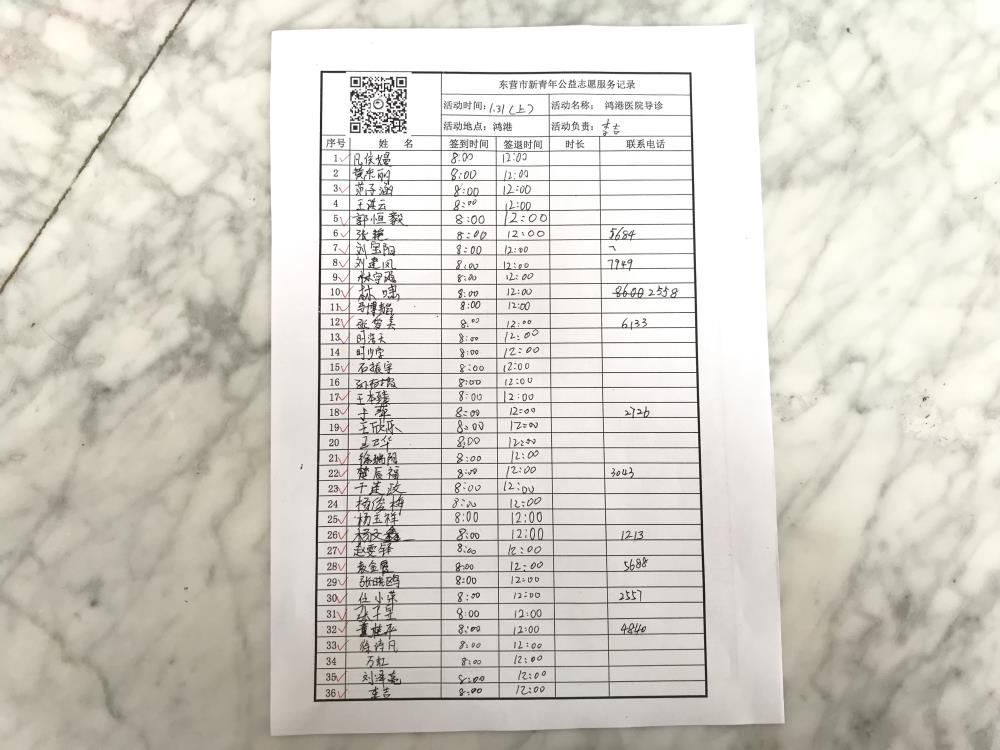 东营市新青年公益志愿服务记录
活动时间：1.31（上） 活动名称： 鸿港医院导诊
活动地点：鸿港 活动负责：李吉
序号 姓 名 签到时间 签退时间 时长 联系电话
1 8:00 12:00
2 8:00 12:00
3 范子涵 8:00 12:00
4 王淇云 8:00 12:00
5 郭恒毅 8:00 12:00
6 张艳 8:00 12:00 5684
7 刘宝阳 8:00 12:00
8 刘建凤 8:00 12:00 7949
9 8:00 12:00
10 林啸 8:00 12:00 8600 2558
11 8:00 12:00
12 张雪美 8:00 12:00 6133
13 时浩天 8:00 12:00
14 时少学 8:00 12:00
15 石振宇 8:00 12:00
16 8:00 12:00
17 王本臻 8:00 12:00
18 于萍 8:00 12:00 2726
19 王欣乐 8:00 12:00
20 王卫华 8:00 12:00
21 徐瑞阳 8:00 12:00
22 楚辰福 8:00 12:00 3043
23 于建政 8:00 12:00
24 杨俊梅 8:00 12:00
25 杨玉祥 8:00 12:00
26 杨文鑫 8:00 12:00 1213
27 赵雯铎 8:00 12:00
28 8:00 12:00 5688
29 张晓鸥 8:00 12:00
30 任小荣 8:00 12:00 2557
31 8:00 12:00
32 董桂平 8:00 12:00 4840
33 徐诗凡 8:00 12:00
34 万虹 8:00 12:00
35 8:00 12:00
36 李吉 8:00 12:00